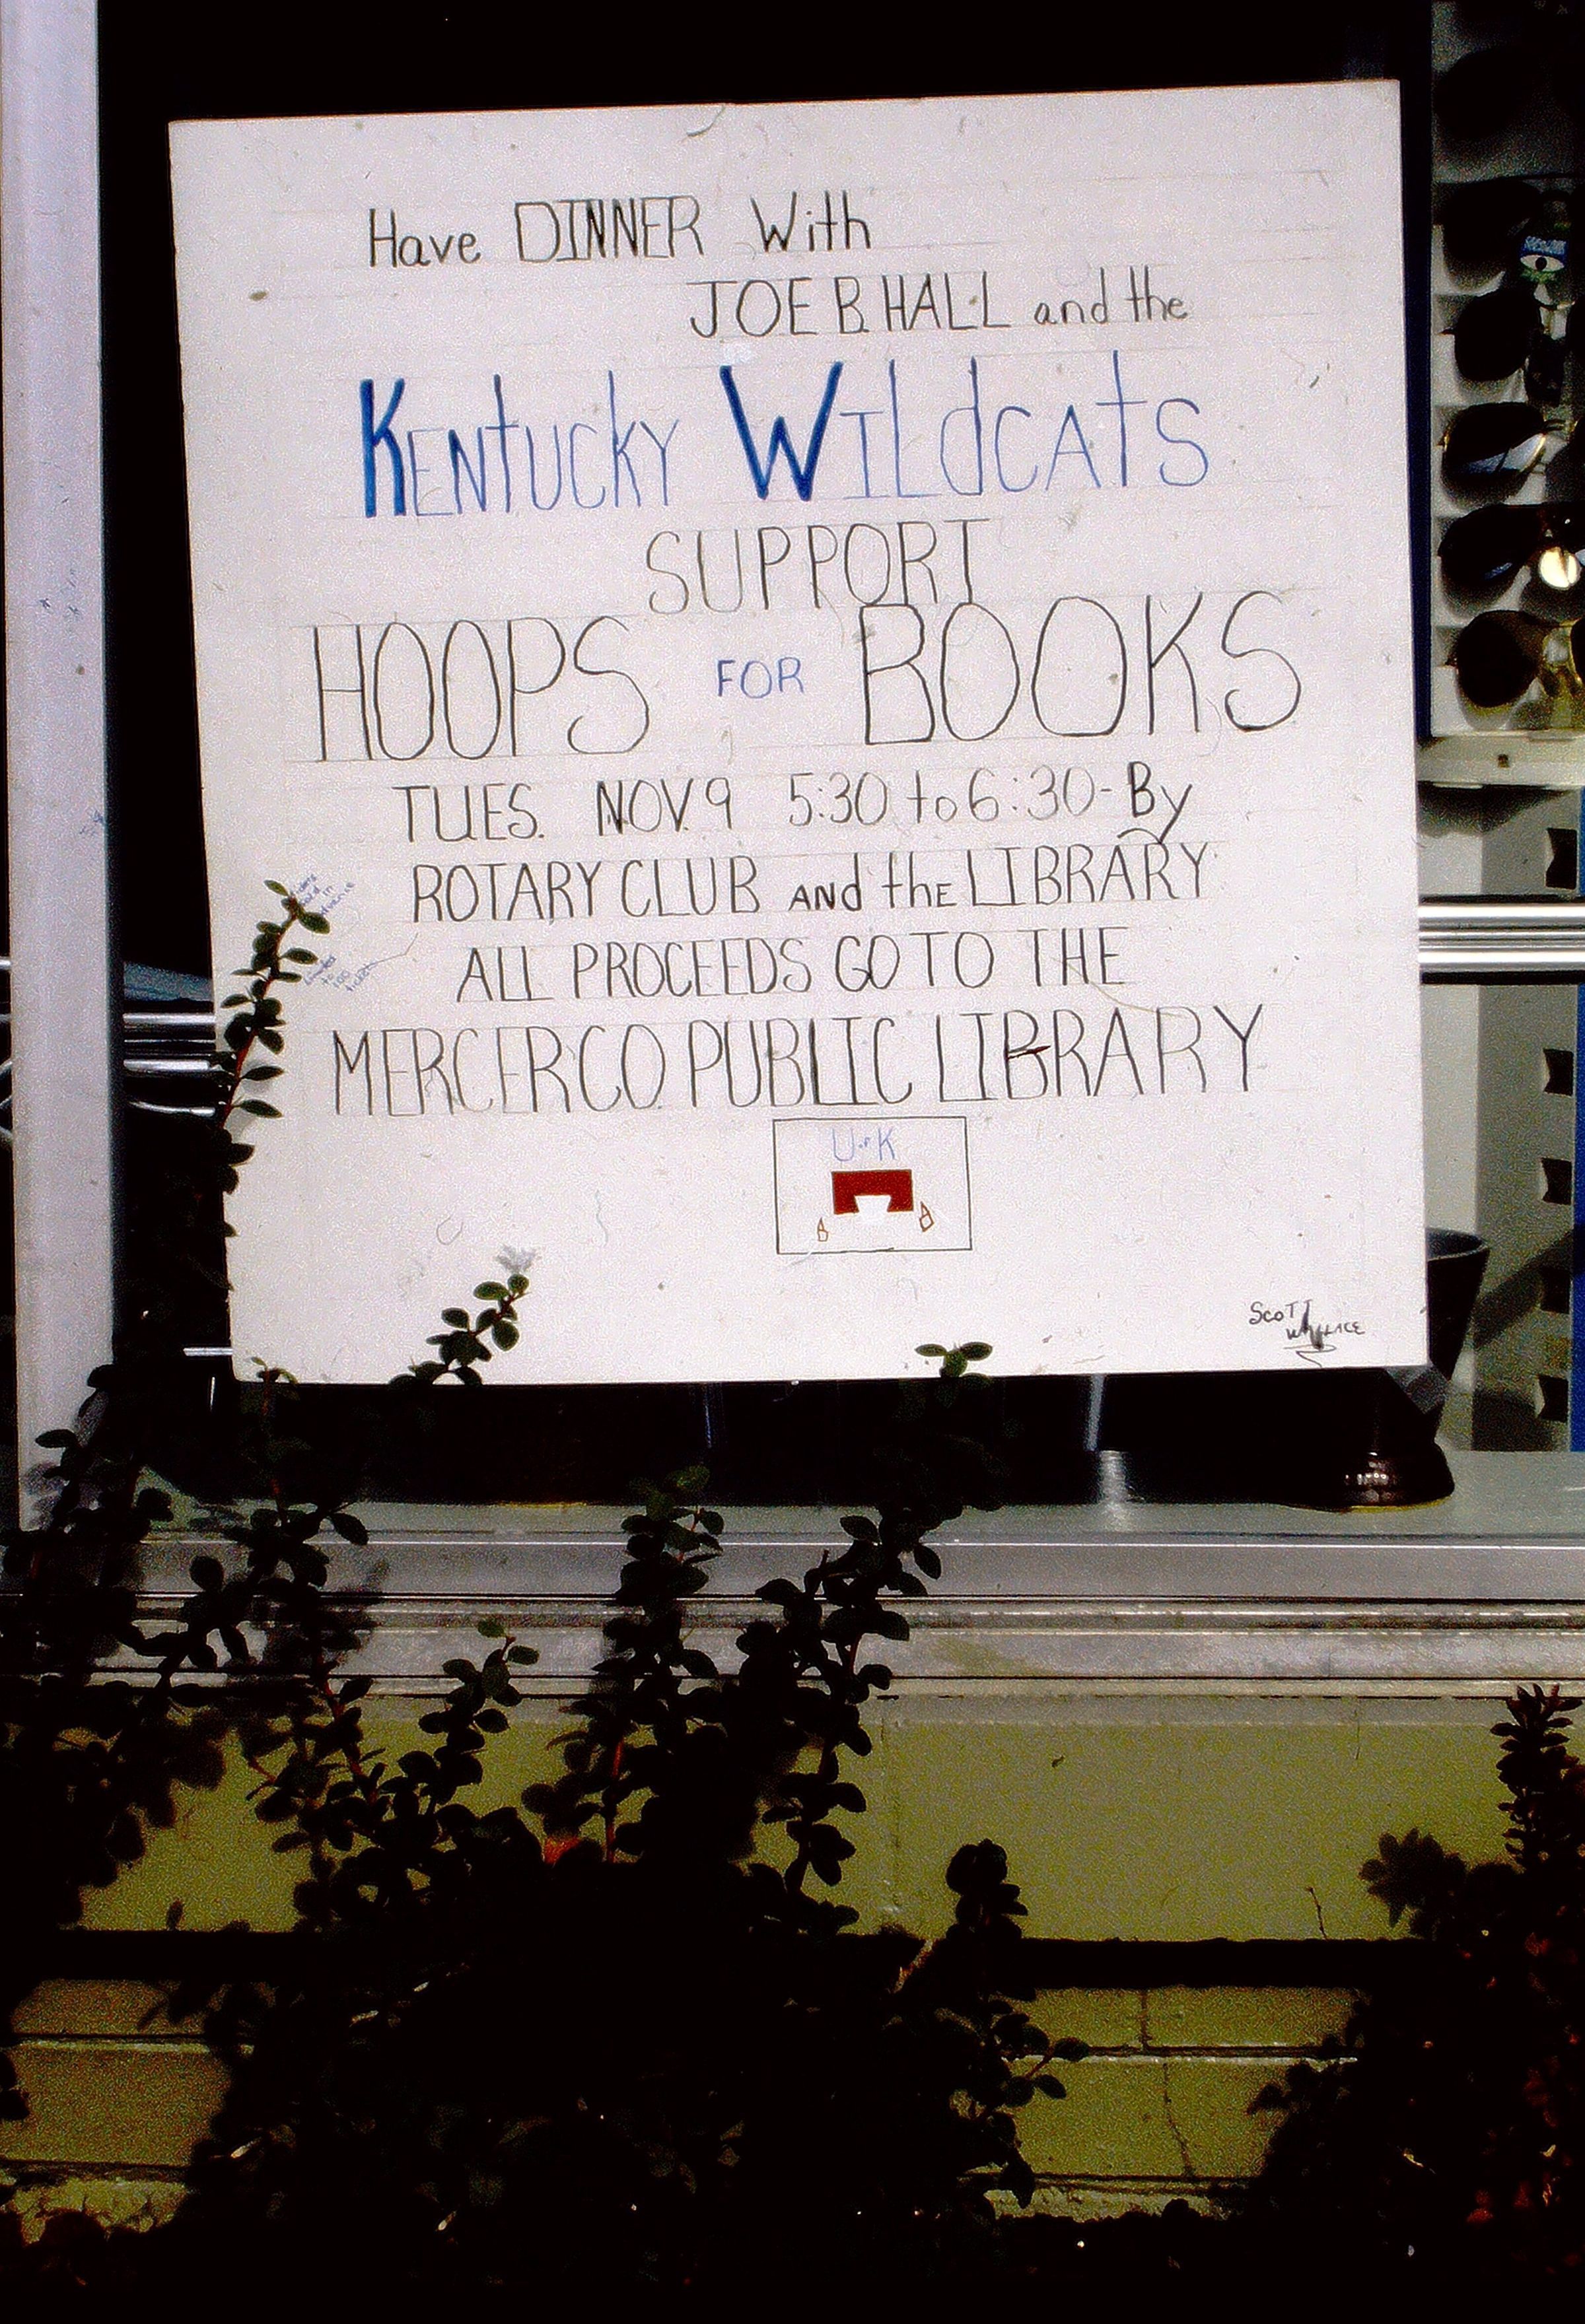 Have DINNER With
JOE B. HALL and the
KENtUCKY WILdCAtS
SUPPORT
HOOPS FOR BOOKS
TUES. NOV. 9 5:30 to 6:30 - By
ROTARY CLUB ANd thE LIBRARY
ALL PROCEEDS GO TO THE
MERCER CO. PUBLIC LIBRARY
U of K
SCOTT
WALLACE
Limited
to
100
tickets